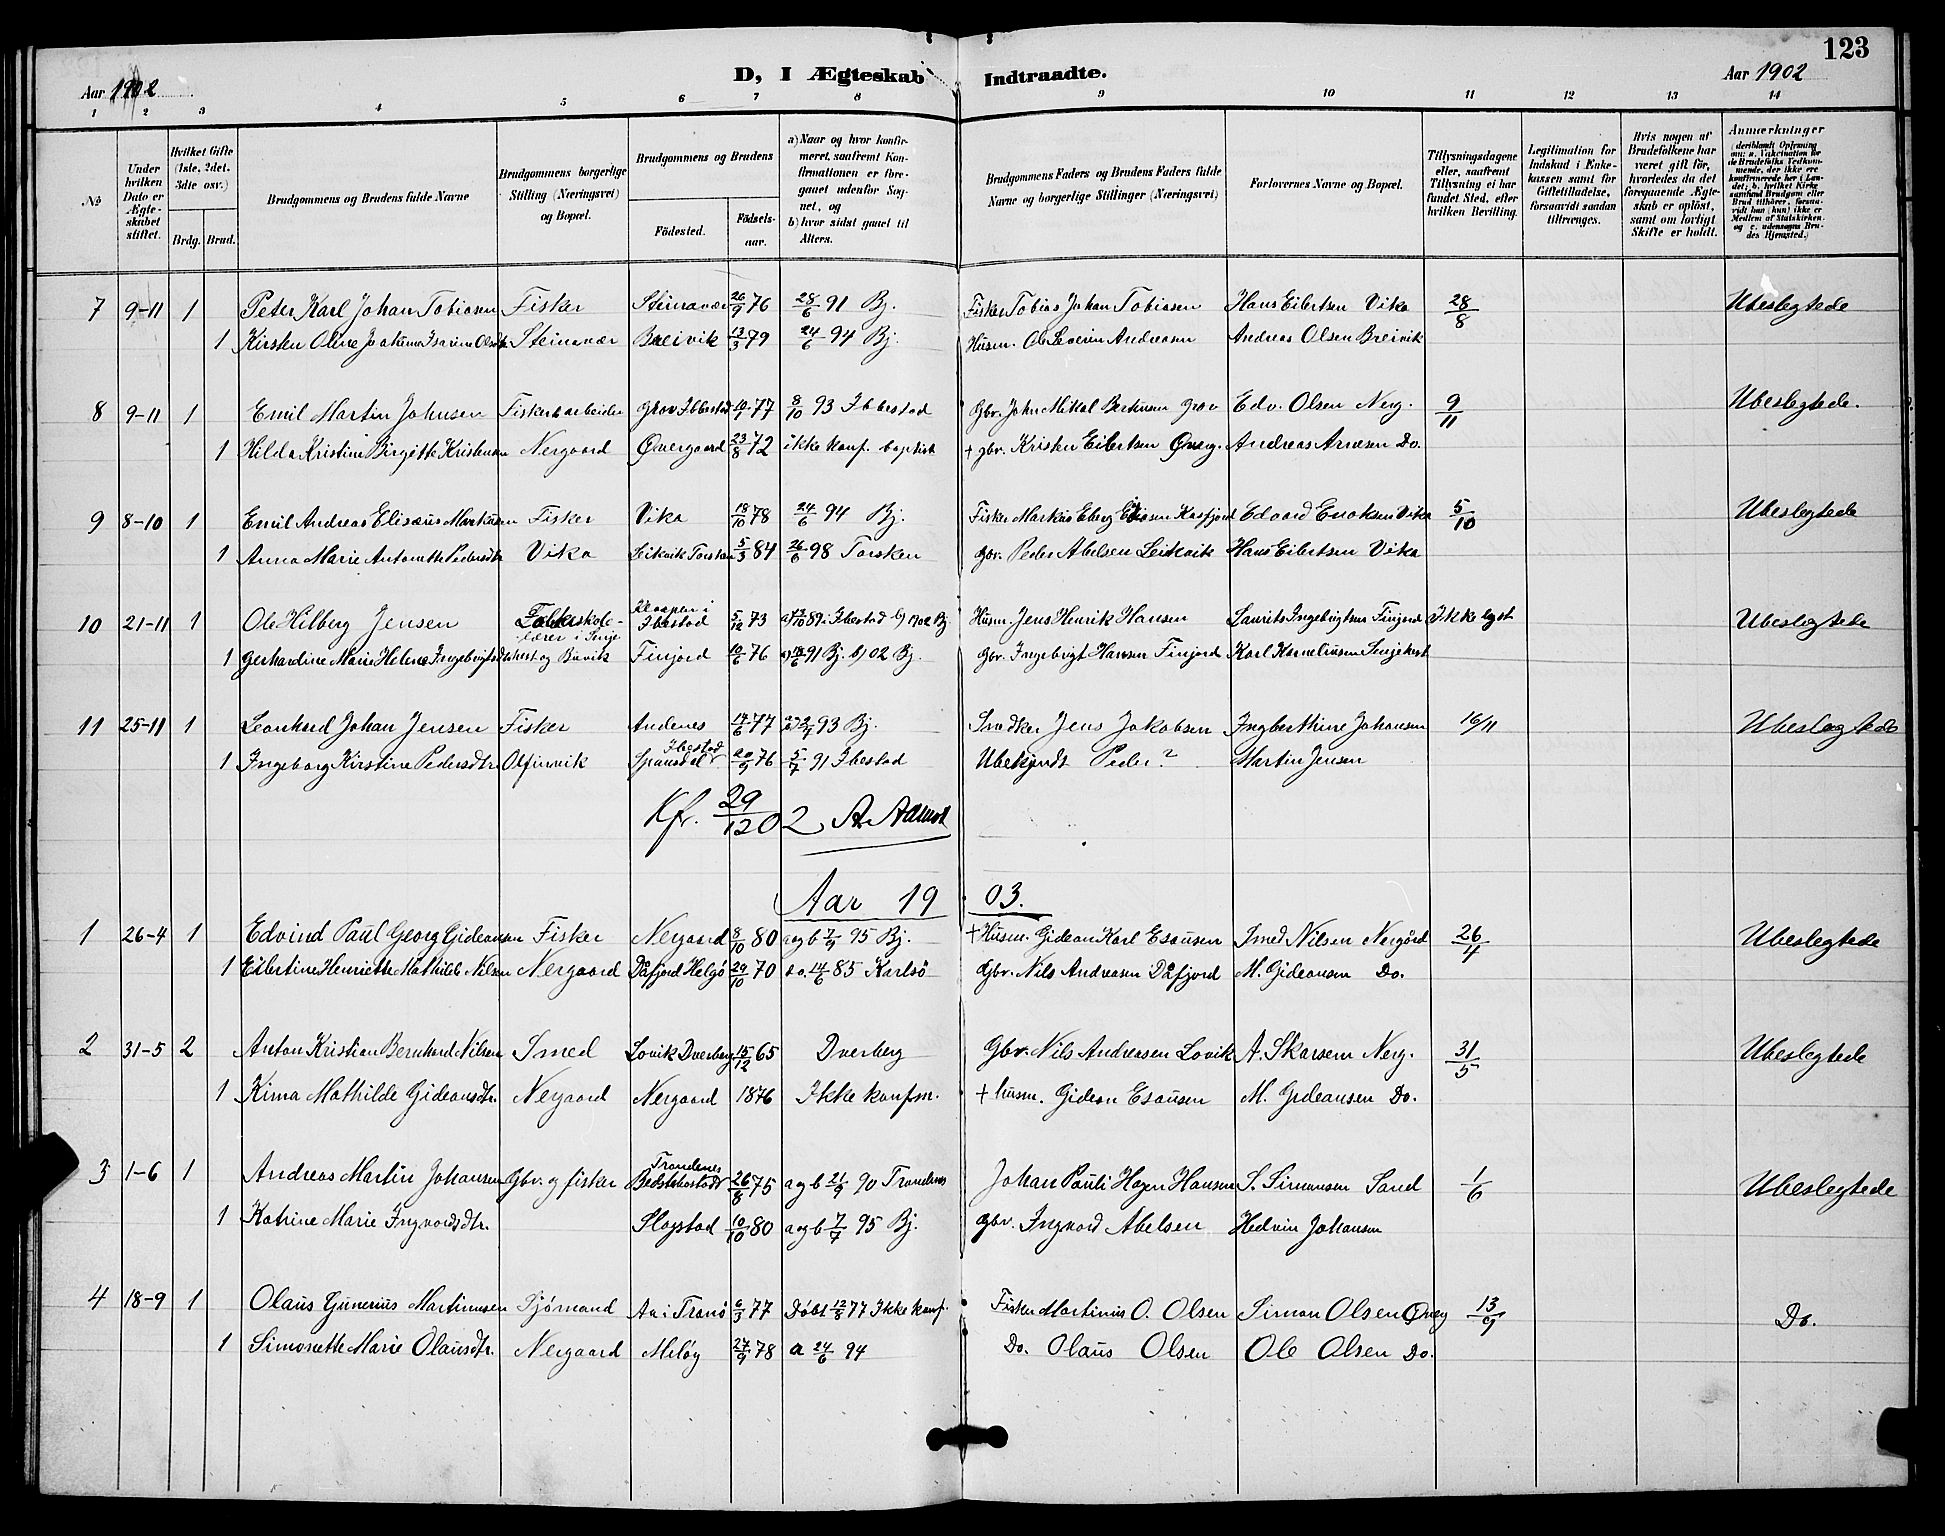 123
Aar 1902
D, I Ægteskab Indtraadte.
Aar 1902
1 2 3 4 5 6 7 8 9 10 11 12 13 14
No
Under hvilken Dato er Ægteskabet stiftet.
Hvilket Gifte (1ste, 2det, 3die osv.)
Brdg. Brud.
Brudgommens og Brudens fulde Navne
Brudgommens borgerlige Stilling (Næringsvei) og Bopæl.
Brudgommens og Brudens
Fødested. Fødselsaar.
a) Naar og hvor konfirmeret, saafremt Konfirmationen er foregaaet udenfor Sognet, og
b) hvor sidst gaaet til Alters.
Brudgommens Faders og Brudens Faders fulde Navne og borgerlige Stillinger (Næringsvei)
Forlovernes Navne og Bopæl.
Tillysningsdagene eller, saafremt Tillysning ei har fundet Sted, efter hvilken Bevilling.
Legitimation for Indskud i Enkekassen samt for Giftetilladelse, forsaavidt saadan tiltrænges.
Hvis nogen af Brudefolkene har været gift før, hvorledes da det foregaaende Ægteskab er opløst, samt om lovligt Skifte er holdt.
Anmerkninger (deriblandt Oplysning om: a. Vaccination for de Brudefolks Vedkommende, der ikke ere konfirmerede her i Landet; b. hvilket Kirkesamfund Brudgom eller Brud tilhører, forsaavidt han (hun) ikke er Medlem af Statskirken, og c. udensogns Brudes Hjemsted.)
7 9-11 1 Peter Karl Johan Tobiasen Fisker Steinavær 26/9 76 28/6 91 Bj. Fisker Tobias Johan Tobiasen Hans Eilertsen Vika 28/8 Ubeslegtede
1 Kirsten Oline Joakima Isarine Olsdtr Steinavær Breivik 13/3 79 24/6 94 Bj. Husm. Ole Severin Andreasen Andreas Olsen Breivik
8 9-11 1 Emil Martin Johnsen Fiskerbarbeider Grov Ibbestad 77 8/10 93 Ibbestad Gbr. John Mikal Berntsen Grov Edv. Olsen Nerg. 9/11 Ubeslegtede.
1 Hilda Kristine Birgitte Kristensen Nergaard Øvergaard 23/8 72 ikke konf. baptist + gbr. Kristen Eilertsen Øverg. Andreas Arnesen Do.
9 8-10 1 Emil Andreas Elisæus Markusen Fisker Vika 18/10 78 24/6 94 Bj. Fisker Markus Eberg Kasfjord Edvard Enoksen Vika 5/10 Ubeslegtede
1 Anna Marie Antonette Pedersdtr Vika Leikvik Torsken 5/3 84 26/6 98 Torsken Gbr. Peder Abelsen Leikvik Hans Eilertsen Vika
10 21-11 1 Ole Hilberg Jensen Folkeskole- Ibestad 5/12 73 89 Ibestad b) 1902 Bj Husm. Jens Henrik Hansen Laurits Ingebrigtsen Finjord Ikke lyst Ubeslegtede
lærer i Senje
1 Gerhardine Marie Helene Ingebrigtsdtr hest og Buvik Finjord 10/6 76 91 Bj. b) 02 Bj. Gbr. Ingebrigt Hansen Finjord Karl Korneliussen Senjehest
11 25-11 1 Leonhard Johan Jensen Fisker Andenes 14/6 77 93 Bj. Snedker Jens Jakobsen Ingberthine Johansen 16/11 Ubeslegtede
1 Ingeborg Kirstine Pedersdtr. Olfinvik Spansdal Ibestad 20/9 76 5/7 91 Ibestad Ubekjendt Peder? Martin Jensen
Kfr. 29/12 02 A.
Aar 1903.
1 26-4 1 Edvind Paul Georg Gideonsen Fisker Nergaard 8/10 80 a og b 7/7 95 Bj. + Husm. Gideon Karl Esausen Smed Nilsen Nergård 26/4 Ubeslegtede
1 Eilertine Henriette Mathilde Nilsen Nergaard Dåfjord Helgø 29/10 70 do. 14/6 85 Karlsö Gbr. Nils Andreasen Dåfjord M. Gideonsen Do.
2 31-5 2 Anton Kristian Bernhard Nilsen Smed Lovik Dverberg 15/12 65 Dverberg Gbr. Nils Andreasen Lovik A. Skarsem Nerg. 31/5 Ubeslegtede
1 Kima Mathilde Gideonsdtr. Negaard Nergaard 1876 Ikke konfm. + husm. Gideon Esausen M. Gideansen Do.
3 1-6 1 Andreas Martin Johansen Gbr. og fisker Trondenes 26/6 75 a og b 21/9 90 Trondenes Johan Pauli Hagen Hansen S. Simonsen Sand 1/6 Ubeslegtede
1 Katrine Marie Ingvardsdtr. Slagstad 10/10 80 a og b 7/7 95 Bj. Gbr. Ingvard Abelsen Hedvin Johansen
4 18-9 1 Olaus Gunerius Martinusen Sjømand Aa i Tranø 6/3 77 Døbt 12/8 77 Ikke konf. Fisker Martinus O. Olsen Simon Olsen Øverg 13/9 Do.
1 Simonette Marie Olausdtr. Nergaard Meløy 27/9 78 a 24/6 94 Do. Olaus Olsen Ole Olsen Do.